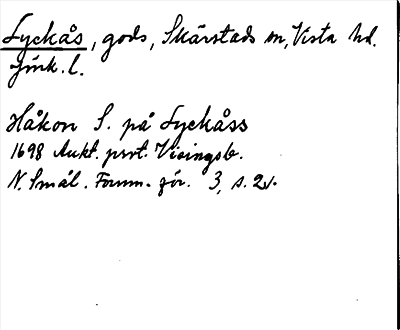 Lyckås, gods, Skärstads sn, Vista hd.
Jönk. l.
Håkon S. på Lyckåss
1698 Aukt. prot. Visingsb.
N. Smål. Fornm. för. 3, s. 21.